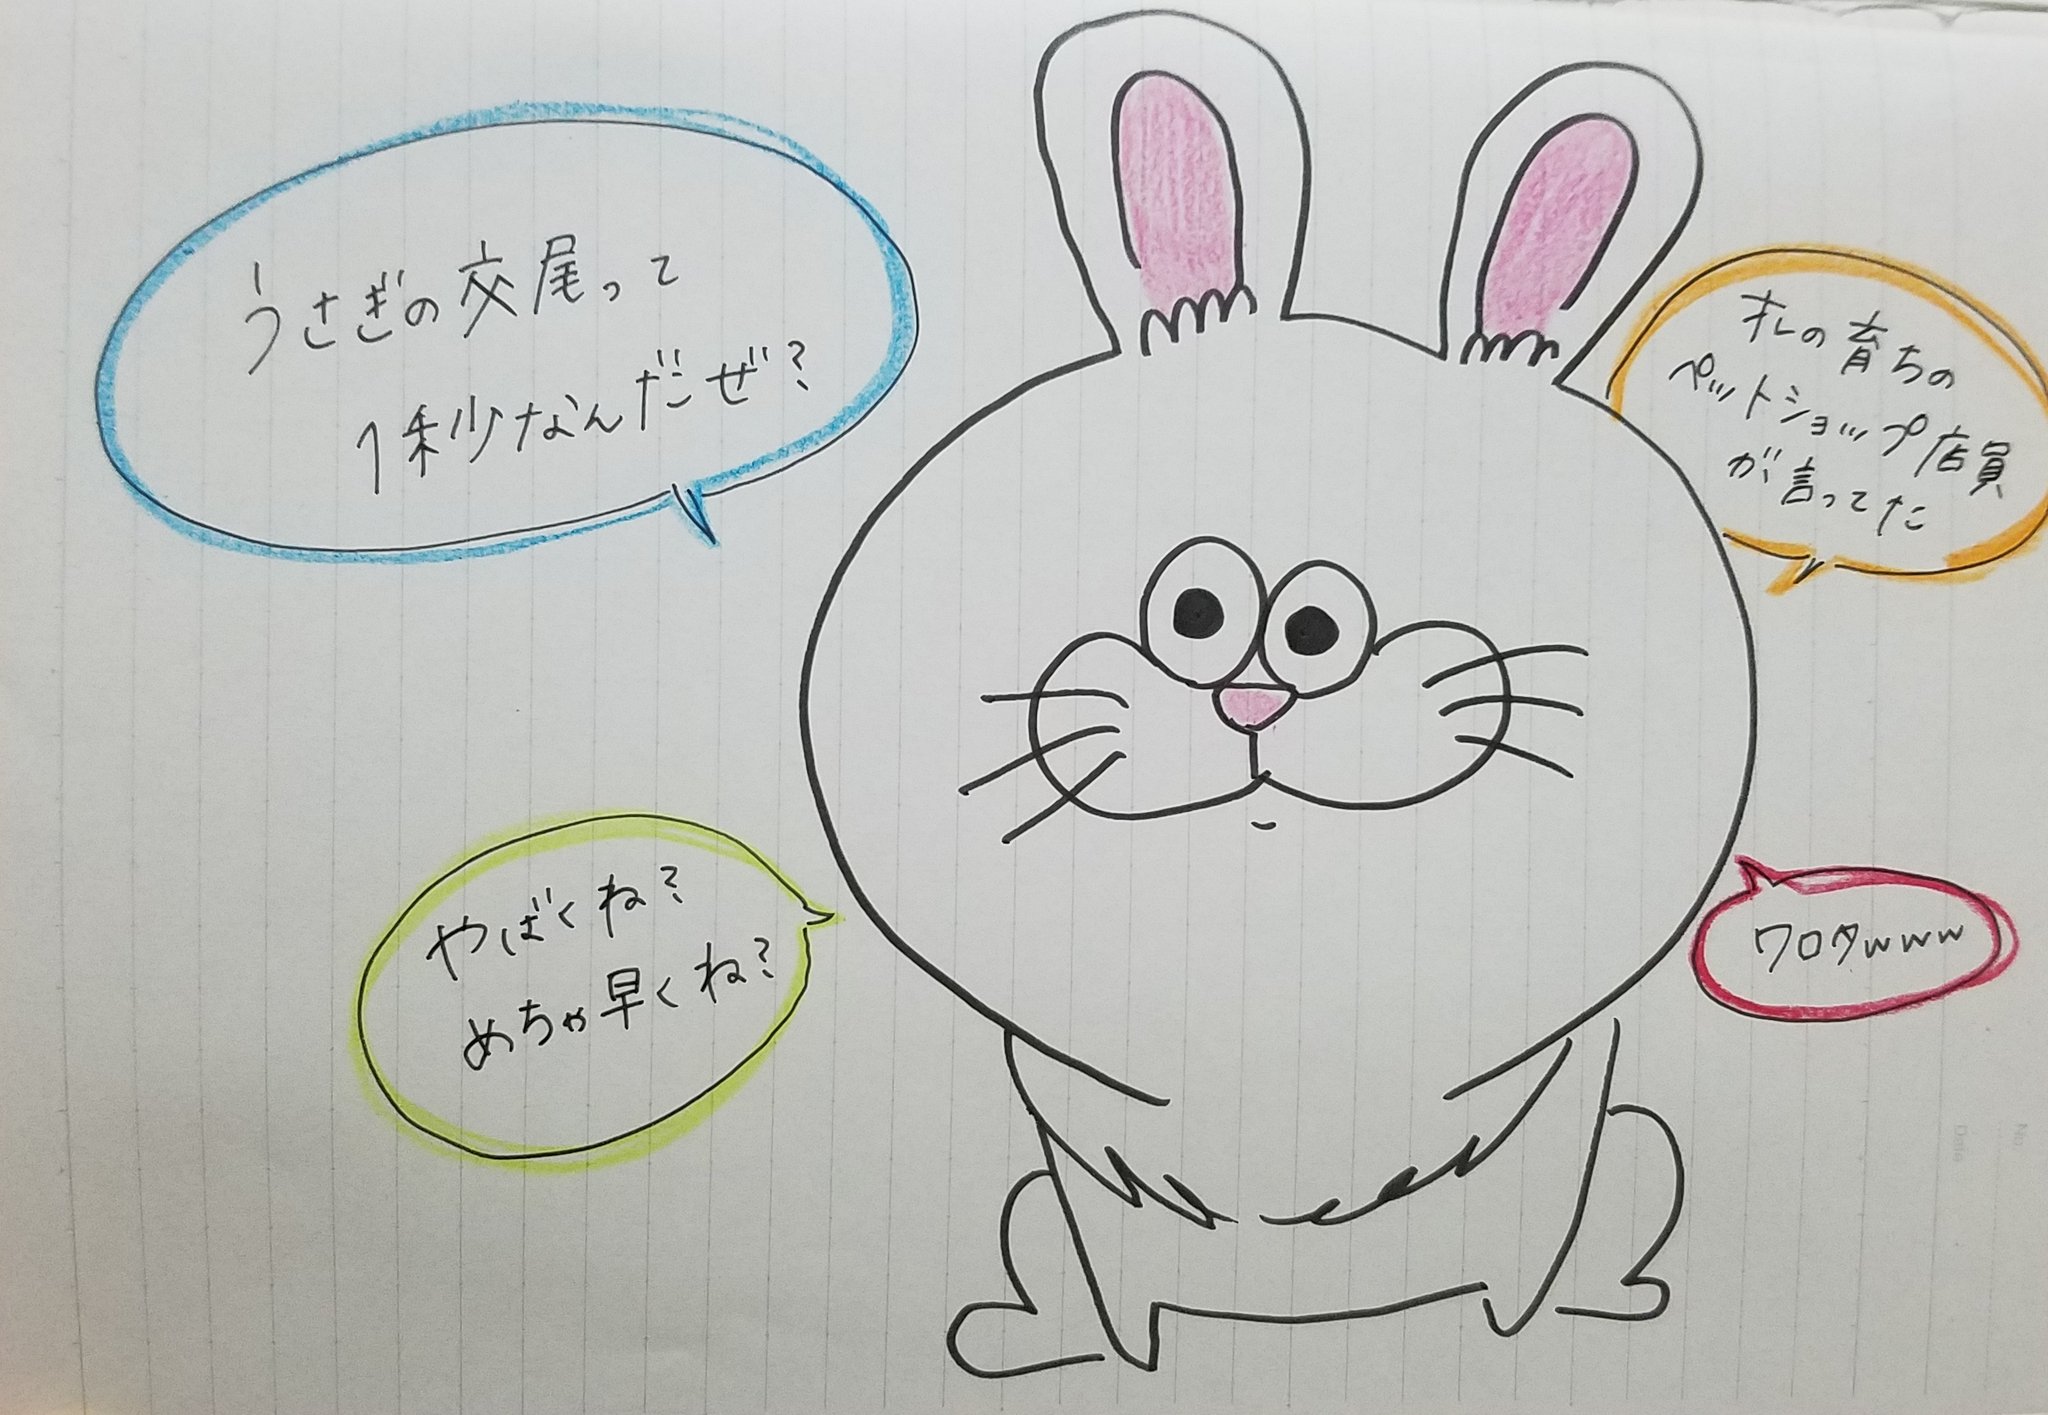 うさぎの交尾って
1秒なんだぜ?
オレの育ちの
ペットショップ店員
が言ってた
やばくね?
めちゃ早くね?
ワロタwww